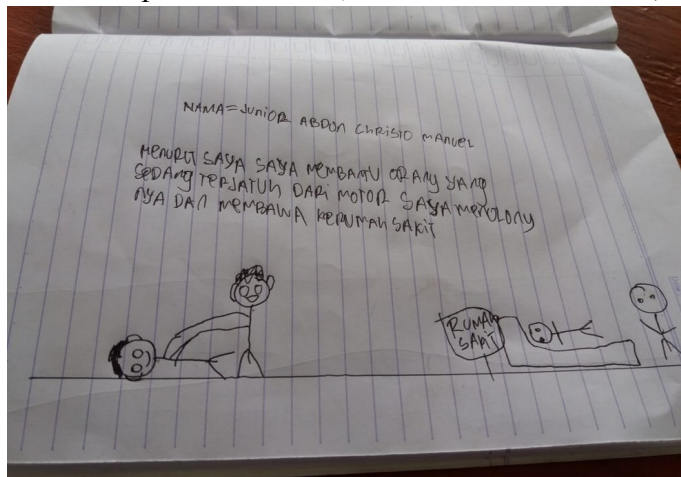 NAMA = JUNIOR ABDON CHRISTO MANUEL
MENURUT SAYA SAYA MEMBANTU ORANG YANG
SEDANG TERJATUH DARI MOTOR SAYA MENOLONG
NYA DAN MEMBAWA KERUMAH SAKIT
RUMAH
SAKIT